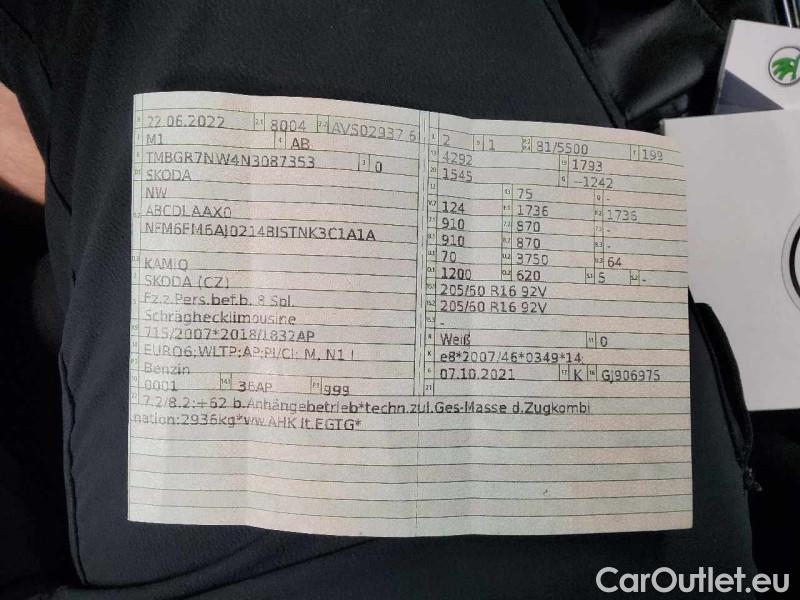 22.06.2022 8004 AVS02937 6
M1 AB
TMBGR7NW4N3087353 0
SKODA
NW
ABCDLAAX0
NFM6FM6AJ0214BISTNK3C1A1A
KAMIQ
SKODA (CZ)
Fz.z.Pers.bef.b. 8 Spl.
Schräghecklimousine
715/2007*2018/1832AP
EURO6;WLTP;AP;PI/CI; M, N1 I
Benzin
0001 36AP 999
2 1 81/5500 199
4292 1793
1545 -1242
75 -
124 1736 1736
910 870 -
910 870 -
70 3750 64
1200 620 5 -
205/60 R16 92V
205/60 R16 92V
-
Weiß 0
e8*2007/46*0349*14
07.10.2021 K GJ906975
7.2/8.2:+62 b.Anhängebetrieb*techn.zul.Ges-Masse d.Zugkombi
nation:2936kg*ww.AHK lt.EGTG*
CarOutlet.eu